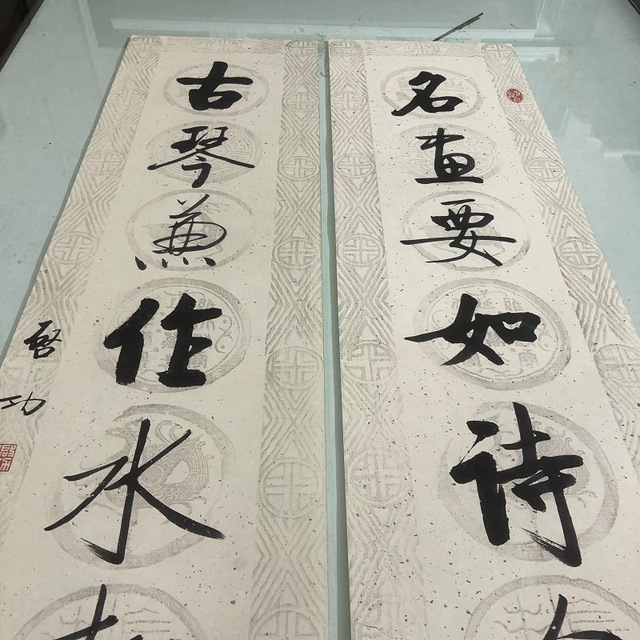 名画要如诗
古琴兼作水
启功